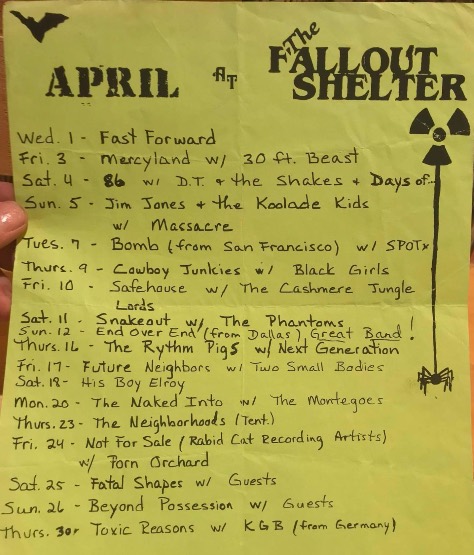 APRIL AT The FALLOUT SHELTER
Wed. 1 - Fast Forward
Fri. 3 - Mercyland w/ 30 ft. Beast
Sat. 4 - 86 w/ D.T. + the Shakes + Days of...
Sun. 5 - Jim Jones + the Koolade Kids
w/ Massacre
Tues. 7 - Bomb (from San Francisco) w/ SPOTx
Thurs. 9 - Cowboy Junkies w/ Black Girls
Fri. 10 - Safehouse w/ The Cashmere Jungle
Lords
Sat. 11 - Snakeout w/ The Phantoms
Sun. 12 - End Over End (from Dallas) Great Band!
Thurs. 16 - The Rythm Pigs w/ Next Generation
Fri. 17 - Future Neighbors w/ Two Small Bodies
Sat. 18 - His Boy Elroy
Mon. 20 - The Naked Into w/ The Montegoes
Thurs. 23 - The Neighborhoods (Tent.)
Fri. 24 - Not For Sale (Rabid Cat Recording Artists)
w/ Porn Orchard
Sat. 25 - Fatal Shapes w/ Guests
Sun. 26 - Beyond Possession w/ Guests
Thurs. 30 - Toxic Reasons w/ KGB (from Germany)